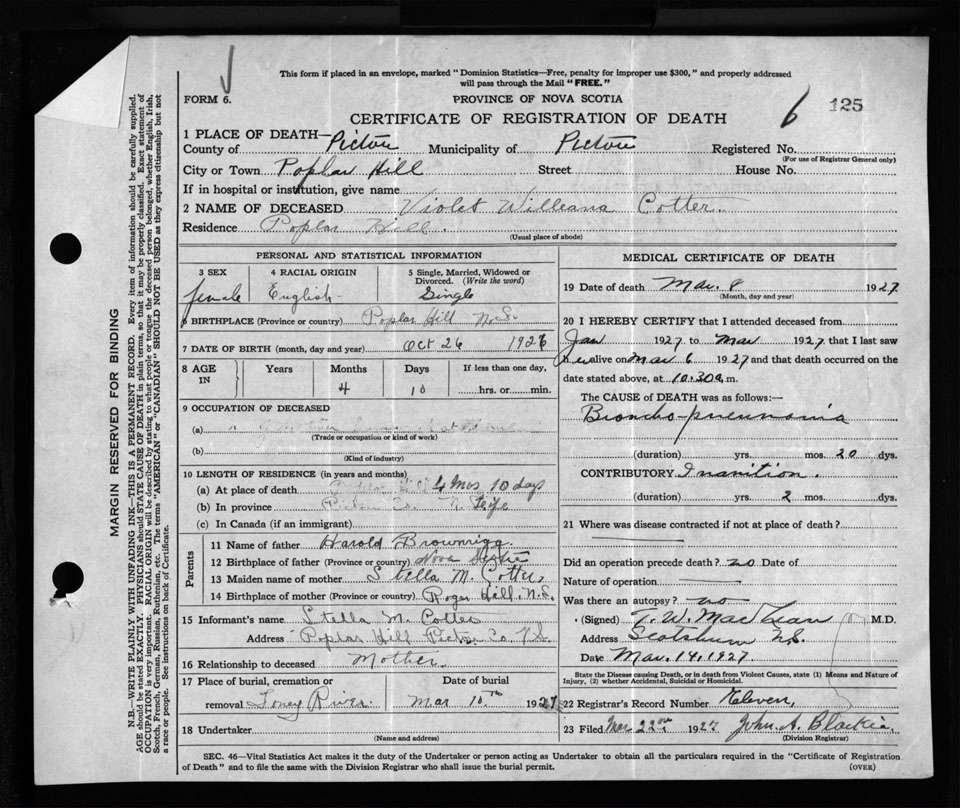 This form if placed in an envelope, marked "Dominion Statistics—Free, penalty for improper use $300," and properly addressed
will pass through the Mail "FREE."
FORM 6.
PROVINCE OF NOVA SCOTIA
6
125
CERTIFICATE OF REGISTRATION OF DEATH
1 PLACE OF DEATH—
County of Pictou Municipality of Pictou Registered No.
(For use of Registrar General only)
City or Town Poplar Hill Street House No.
If in hospital or institution, give name
2 NAME OF DECEASED Violet Willeana Cotter
Residence Poplar Hill
(Usual place of abode)
PERSONAL AND STATISTICAL INFORMATION
3 SEX
female
4 RACIAL ORIGIN
English
5 Single, Married, Widowed or
Divorced. (Write the word)
Single
6 BIRTHPLACE (Province or country) Poplar Hill N.S.
7 DATE OF BIRTH (month, day and year) Oct 26 1926
8 AGE
IN
Years
Months
4
Days
10
If less than one day,
hrs. or min.
9 OCCUPATION OF DECEASED
(a)
(Trade or occupation or kind of work)
(b)
(Kind of industry)
10 LENGTH OF RESIDENCE (in years and months)
(a) At place of death Poplar Hill 4 mos 10 days
(b) In province Pictou Co. N.S. Life
(c) In Canada (if an immigrant)
Parents
11 Name of father Harold Brownrigg
12 Birthplace of father (Province or country) Nova Scotia
13 Maiden name of mother Stella M. Cotter
14 Birthplace of mother (Province or country) Roger Hill, N.S.
15 Informant's name Stella M. Cotter
Address Poplar Hill Pictou Co. N.S.
16 Relationship to deceased Mother
17 Place of burial, cremation or
removal Toney River
Date of burial
Mar 10th 1927
18 Undertaker
(Name and address)
MEDICAL CERTIFICATE OF DEATH
19 Date of death Mar. 8 1927
(Month, day and year)
20 I HEREBY CERTIFY that I attended deceased from
Jan 1927 to Mar 1927 that I last saw
her alive on Mar 6 1927 and that death occurred on the
date stated above, at 10.30 a.m.
The CAUSE of DEATH was as follows:—
Broncho-pneumonia
(duration) yrs. mos. 20 dys.
CONTRIBUTORY Inanition.
(duration) yrs. 2 mos. dys.
21 Where was disease contracted if not at place of death?
Did an operation precede death? no Date of
Nature of operation
Was there an autopsy? no
(Signed) T. W. MacLean M.D.
Address Scotsburn N.S.
Date Mar. 14, 1927
State the Disease causing Death, or in death from Violent Causes, state (1) Means and Nature of
Injury, (2) whether Accidental, Suicidal or Homicidal.
22 Registrar's Record Number Eleven,
23 Filed Mar 22nd 1927 John A. Blaikie
(Division Registrar)
SEC. 46—Vital Statistics Act makes it the duty of the Undertaker or person acting as Undertaker to obtain all the particulars required in the "Certificate of Registration
of Death" and to file the same with the Division Registrar who shall issue the burial permit.
(OVER)
MARGIN RESERVED FOR BINDING
N.B.—WRITE PLAINLY WITH UNFADING INK—THIS IS A PERMANENT RECORD. Every item of information should be carefully supplied.
AGE should be stated EXACTLY. PHYSICIANS should STATE CAUSE OF DEATH in plain terms, so that it may be properly classified. Exact statement of
OCCUPATION is very important. RACIAL ORIGIN will be described by stating to what people or tongue the deceased person belonged, whether English, Irish,
Scotch, French, German, Russian, Ruthenian, etc. The terms "AMERICAN" or "CANADIAN" SHOULD NOT BE USED as they express citizenship but not
a race or people. See instructions on back of Certificate.